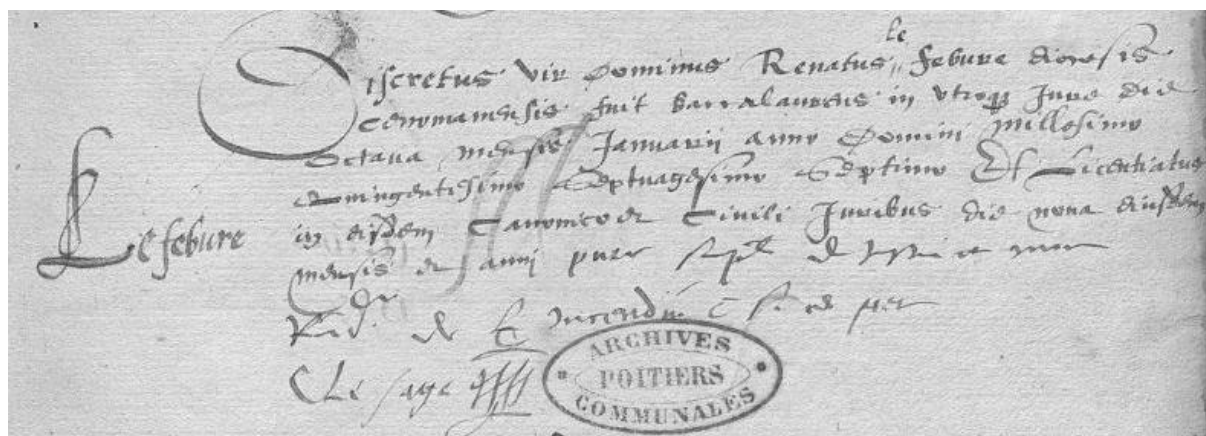 le
Discretus vir Dominus Renatus febure diocesis
Cenomanensis fuit baccalaureus in utroque Jure die
Octava mensis Januarii anno Domini millesimo
quingentesimo Septuagesimo Septimo Et Licentiatus
Lefebure
in eisdem Canonico et Civili Juribus die nona eiusdem
mensis et anni
Le sage
ARCHIVES
POITIERS
COMMUNALES